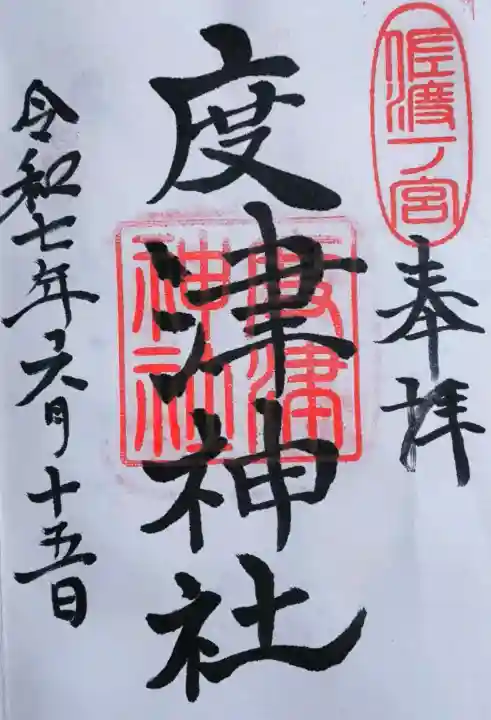 佐渡一ノ宮
奉拝
度津神社
度津
神社
令和七年六月十五日